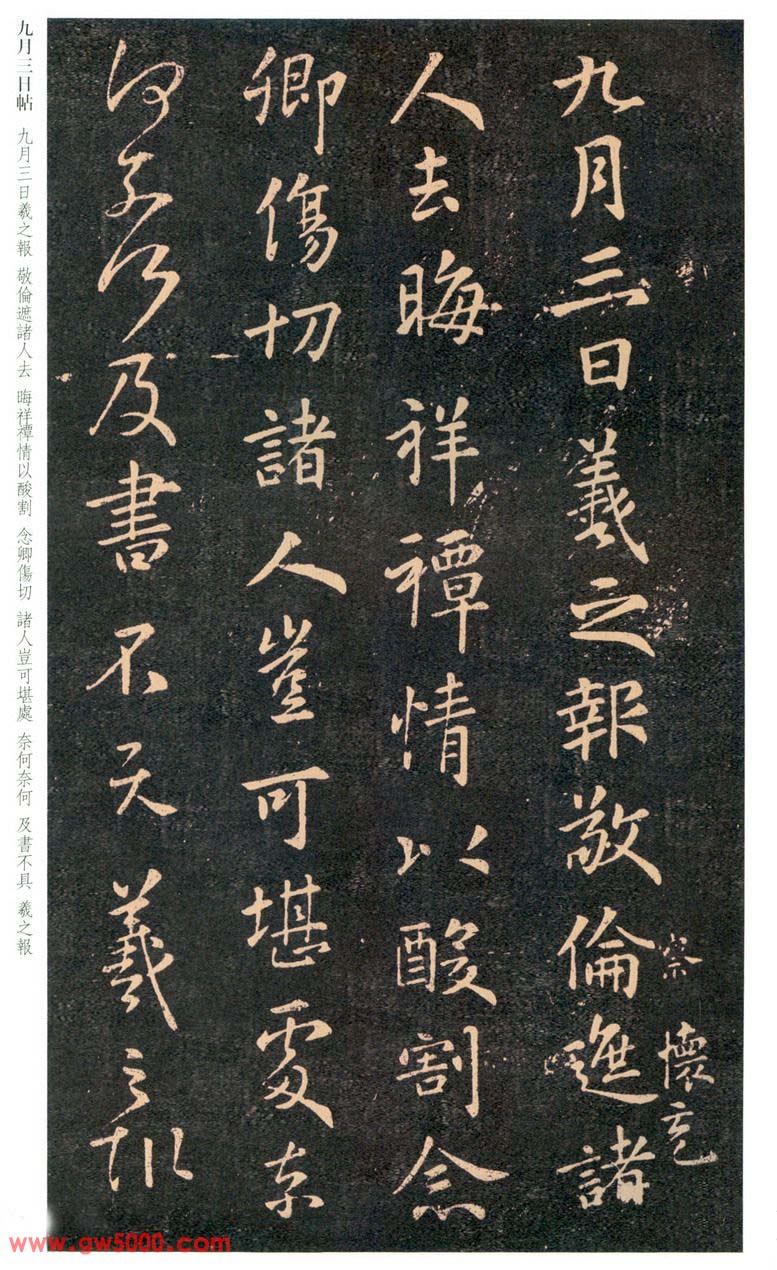 察 懷充
九月三日羲之報敬倫遮諸
人去晦祥禫情以酸割念
卿傷切諸人豈可堪處奈
何奈何及書不具羲之報
九月三日帖 九月三日羲之報 敬倫遮諸人去 晦祥禫情以酸割 念卿傷切 諸人豈可堪處 奈何奈何 及書不具 羲之報
www.gw5000.com